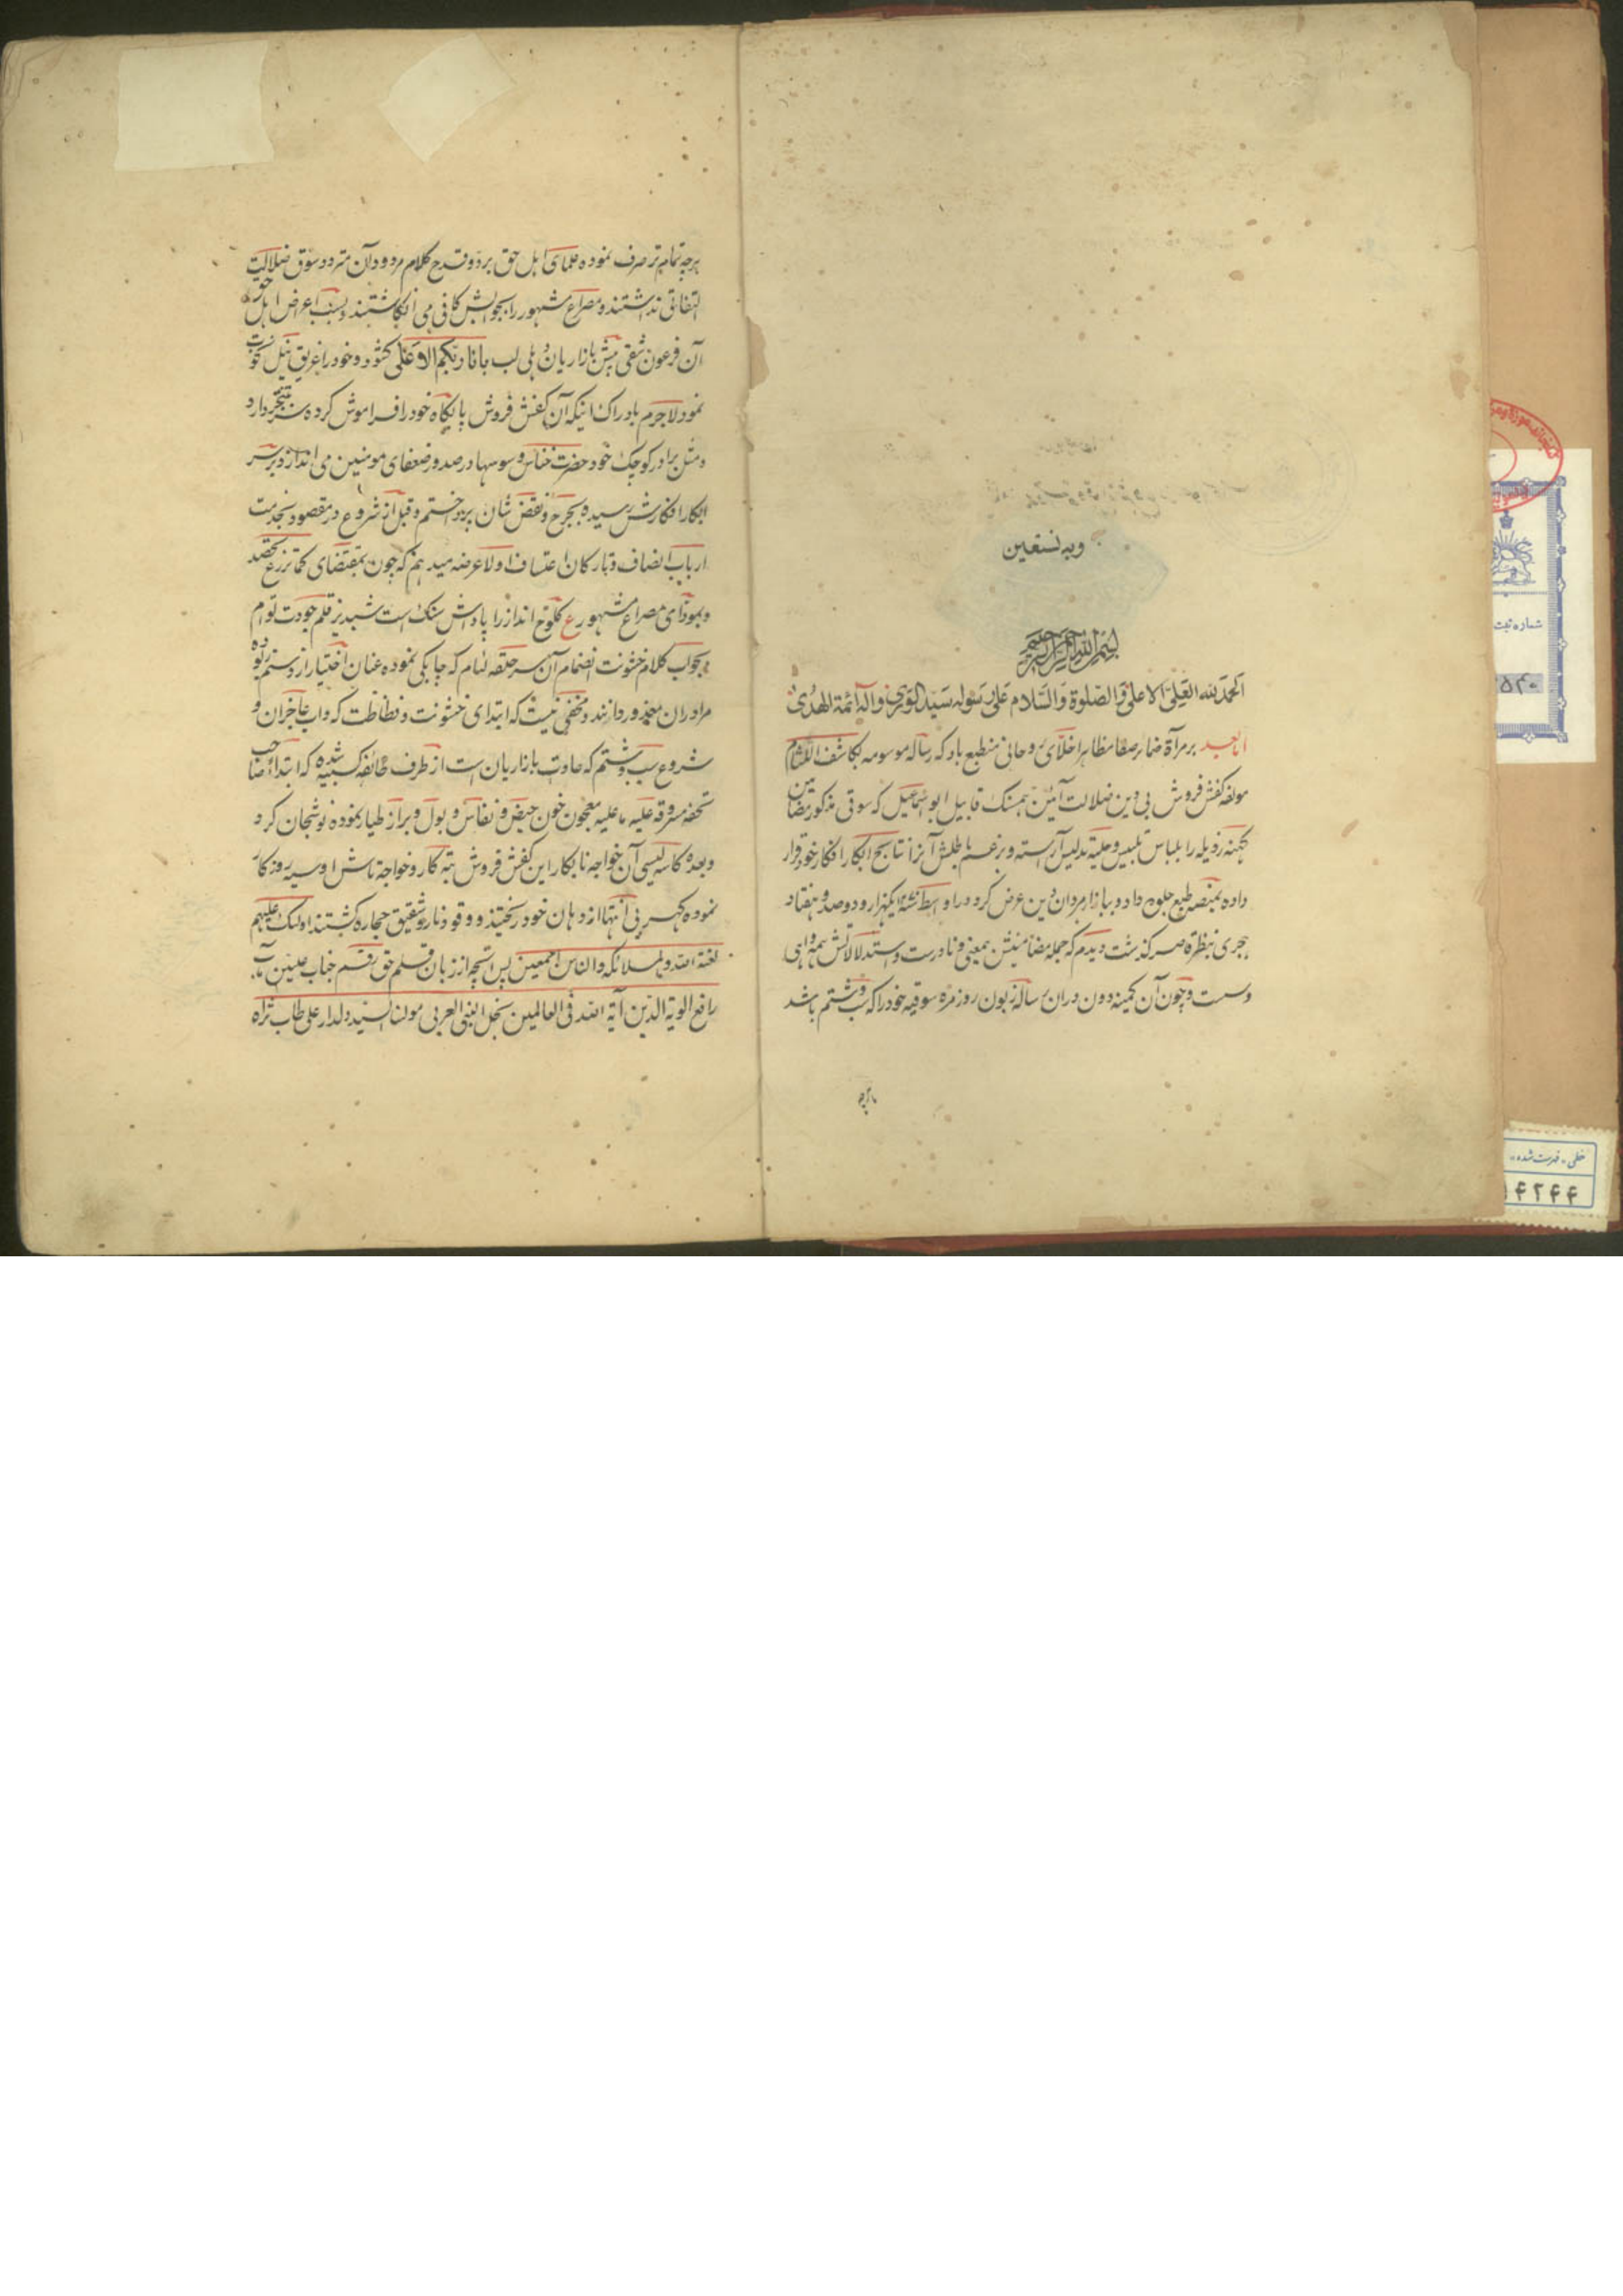 وبه نستعین
بسم الله الرحمن الرحیم
الحمد لله العلی الاعلی والصلوة والسلام علی رسوله سید الوری واله ائمة الهدی
اما بعد بر مرآة ضمائر صفا مظاهر اخلای روحانی منطبع باد که رساله موسومه بکاشف اللثام
مولفه کفش فروش بی دین ضلالت آئین همسنک قابیل ابو اسماعیل که سوقی مذکور مضامین
کهنه رذیله را بلباس تلبیس و حلیه تدلیس آراسته و بزعم باطلش آنرا نتایج ابکار افکار خود قرار
داده بمنصه طبع جلوه داد و ببازار مردان دین عرض کرد در اواسط سنه یکهزار و دوصد و هفتاد
هجری بنظر قاصر کذشت دیدم که جمله مضامینش بمعنی و نادرست و استدلالاتش همه واهی
و سست و چون آن کمینه دون دران رساله زبون روزمره سوقیه خود را که سب و شتم باشد
هرچه تمامتر صرف نموده علمای اهل حق برد و قدح کلام مردود آن متردد سوق ضلالت
التفاتی نداشتند و مصراع مشهور را بجوابش کافی می انکاشتند و بسبب اعراض اهل حق
آن فرعون شقی پیش بازاریان دهلی لب بانا ربکم الاعلی کشود و خود را غریق نیل نخوت
نمود لاجرم بادراک اینکه آن کفش فروش پایکاه خود را فراموش کرده سر تبختر دارد
و مثل برادر کوچک خود حضرت خناس وسوسها در صدور ضعفای مومنین می اندازد بر سر
ابکار افکارش رسیده بجرح و نقض شان پرداختم و قبل از شروع در مقصود بخدمت
ارباب انصاف و تارکان اعتساف اولا عرضه میدهم که چون بمقتضای کما تزرع تحصد
و بمودای مصراع مشهور ع کلوخ انداز را پاداش سنک است شبدیز قلم جودت توام
بجواب کلام خشونت انضمام آن سرحلقه لئام که چابکی نموده عنان اختیار از دستم ربوده
مرا دران معذور دارند و مخفی نیست که ابتدای خشونت و فظاظت که داب عاجزان و
شروع سب و شتم که عادت بازاریان است از طرف طائفه کسبیه شده که ابتدا صاحب
تحفه مسروقه علیه ما علیه معجون خون حیض و نفاس و بول و براز طیار نموده نوشجان کرد
و بعده کاسه لیسی آن خواجه نابکار این کفش فروش تبه کار و خواجه تاش او سیه روزکار
نموده کهربی انتها از دهان خود ریختند و وقود نار و شقیق حجاره کشتند اولئک علیهم
لعنة الله والملائکه والناس اجمعین پس آنچه از زبان قلم حق رقم جناب علیین مآب
رافع الویة الدین آیة الله فی العالمین نجل النبی العربی مولنا السید دلدار علی طاب ثراه
شماره ثبت
خطی - فهرست شده
۱۴۲۴۴